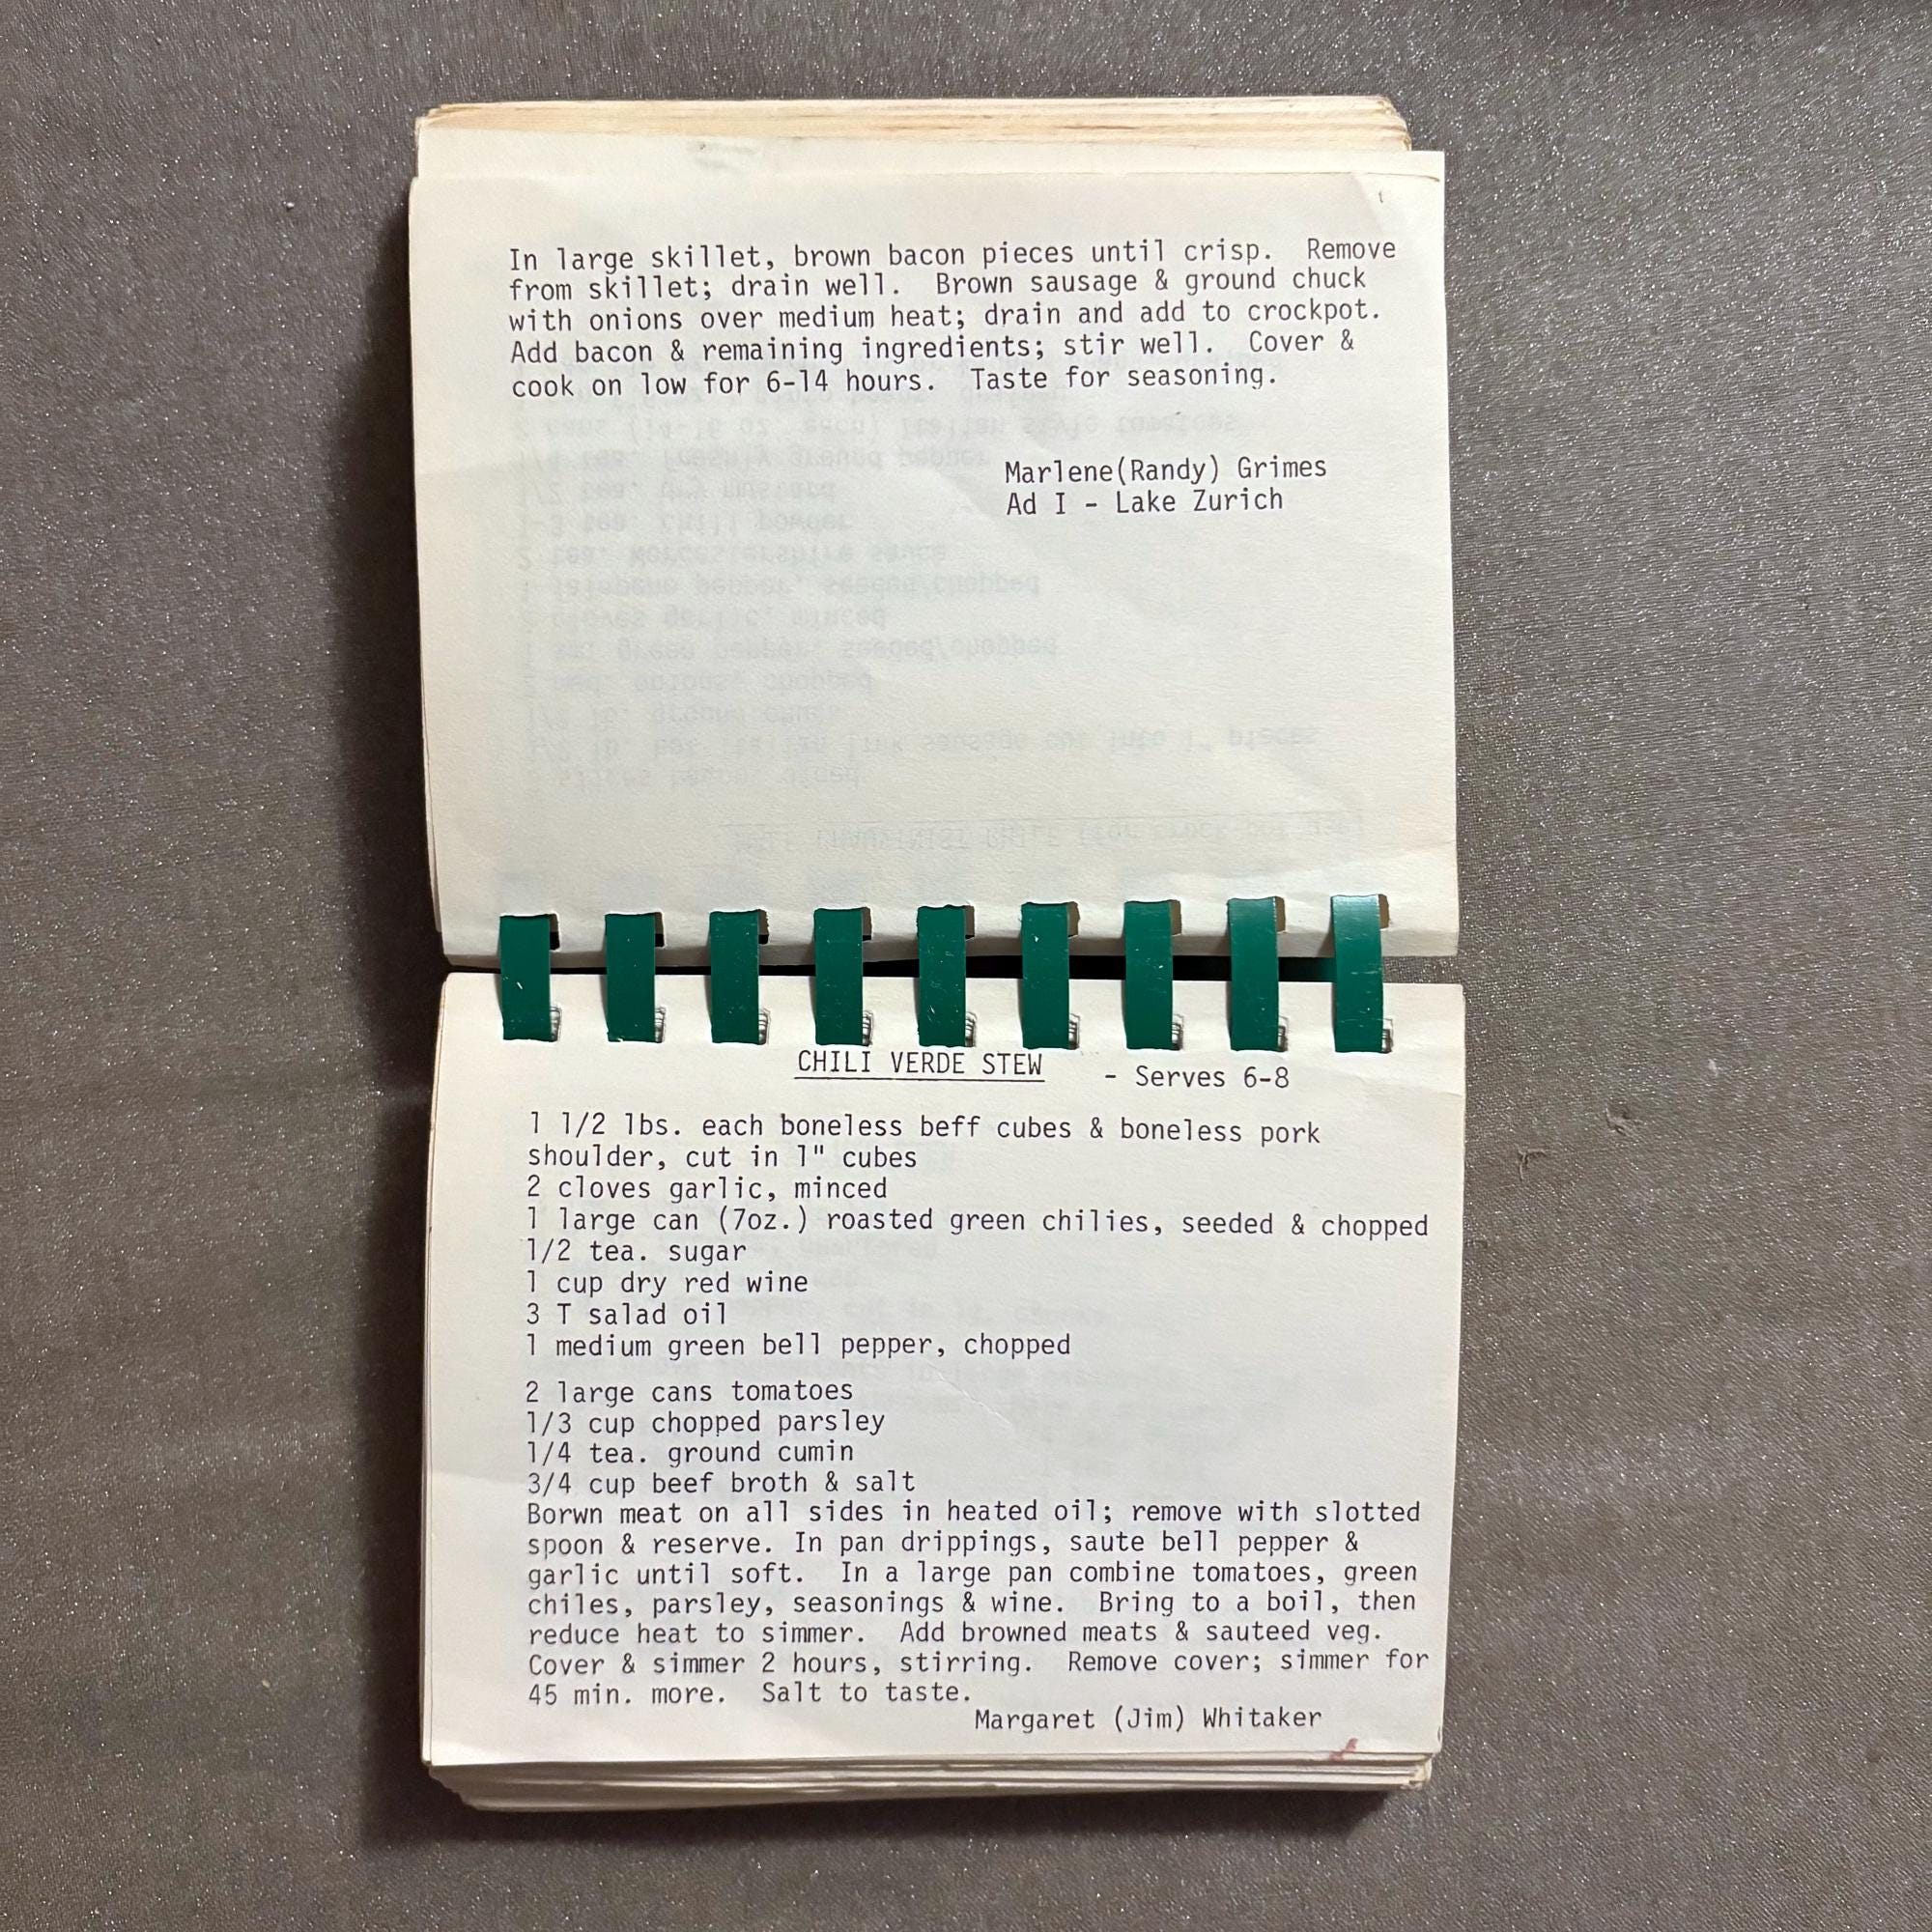 In large skillet, brown bacon pieces until crisp.  Remove
from skillet; drain well.  Brown sausage & ground chuck
with onions over medium heat; drain and add to crockpot.
Add bacon & remaining ingredients; stir well.  Cover &
cook on low for 6-14 hours.  Taste for seasoning.
Marlene(Randy) Grimes
Ad I - Lake Zurich
CHILI VERDE STEW - Serves 6-8
1 1/2 lbs. each boneless beff cubes & boneless pork
shoulder, cut in 1" cubes
2 cloves garlic, minced
1 large can (7oz.) roasted green chilies, seeded & chopped
1/2 tea. sugar
1 cup dry red wine
3 T salad oil
1 medium green bell pepper, chopped
2 large cans tomatoes
1/3 cup chopped parsley
1/4 tea. ground cumin
3/4 cup beef broth & salt
Borwn meat on all sides in heated oil; remove with slotted
spoon & reserve. In pan drippings, saute bell pepper &
garlic until soft.  In a large pan combine tomatoes, green
chiles, parsley, seasonings & wine.  Bring to a boil, then
reduce heat to simmer.  Add browned meats & sauteed veg.
Cover & simmer 2 hours, stirring.  Remove cover; simmer for
45 min. more.  Salt to taste.
Margaret (Jim) Whitaker